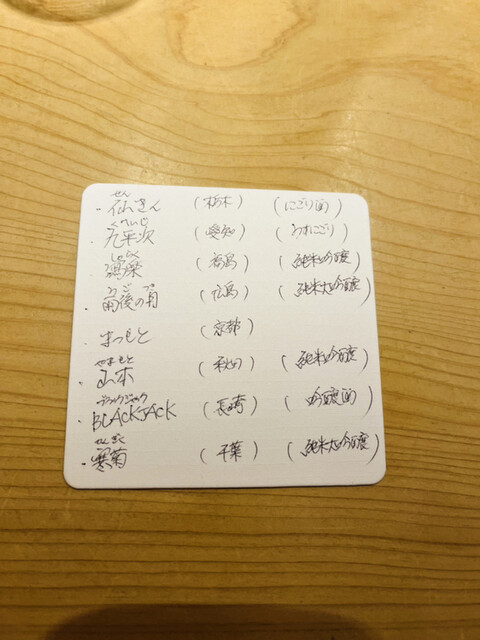 せん
・仙きん (栃木) (にごり酒)
くへいじ
・九平次 (愛知) (うすにごり)
しゃらく
・寫楽 (福島) (純米吟醸)
うご
・雨後の月 (広島) (純米大吟醸)
・まつもと (京都)
やまもと
・山本 (秋田) (純米吟醸)
ブラックジャック
・BLACKJACK (長崎) (吟醸酒)
・寒菊 (千葉) (純米大吟醸)